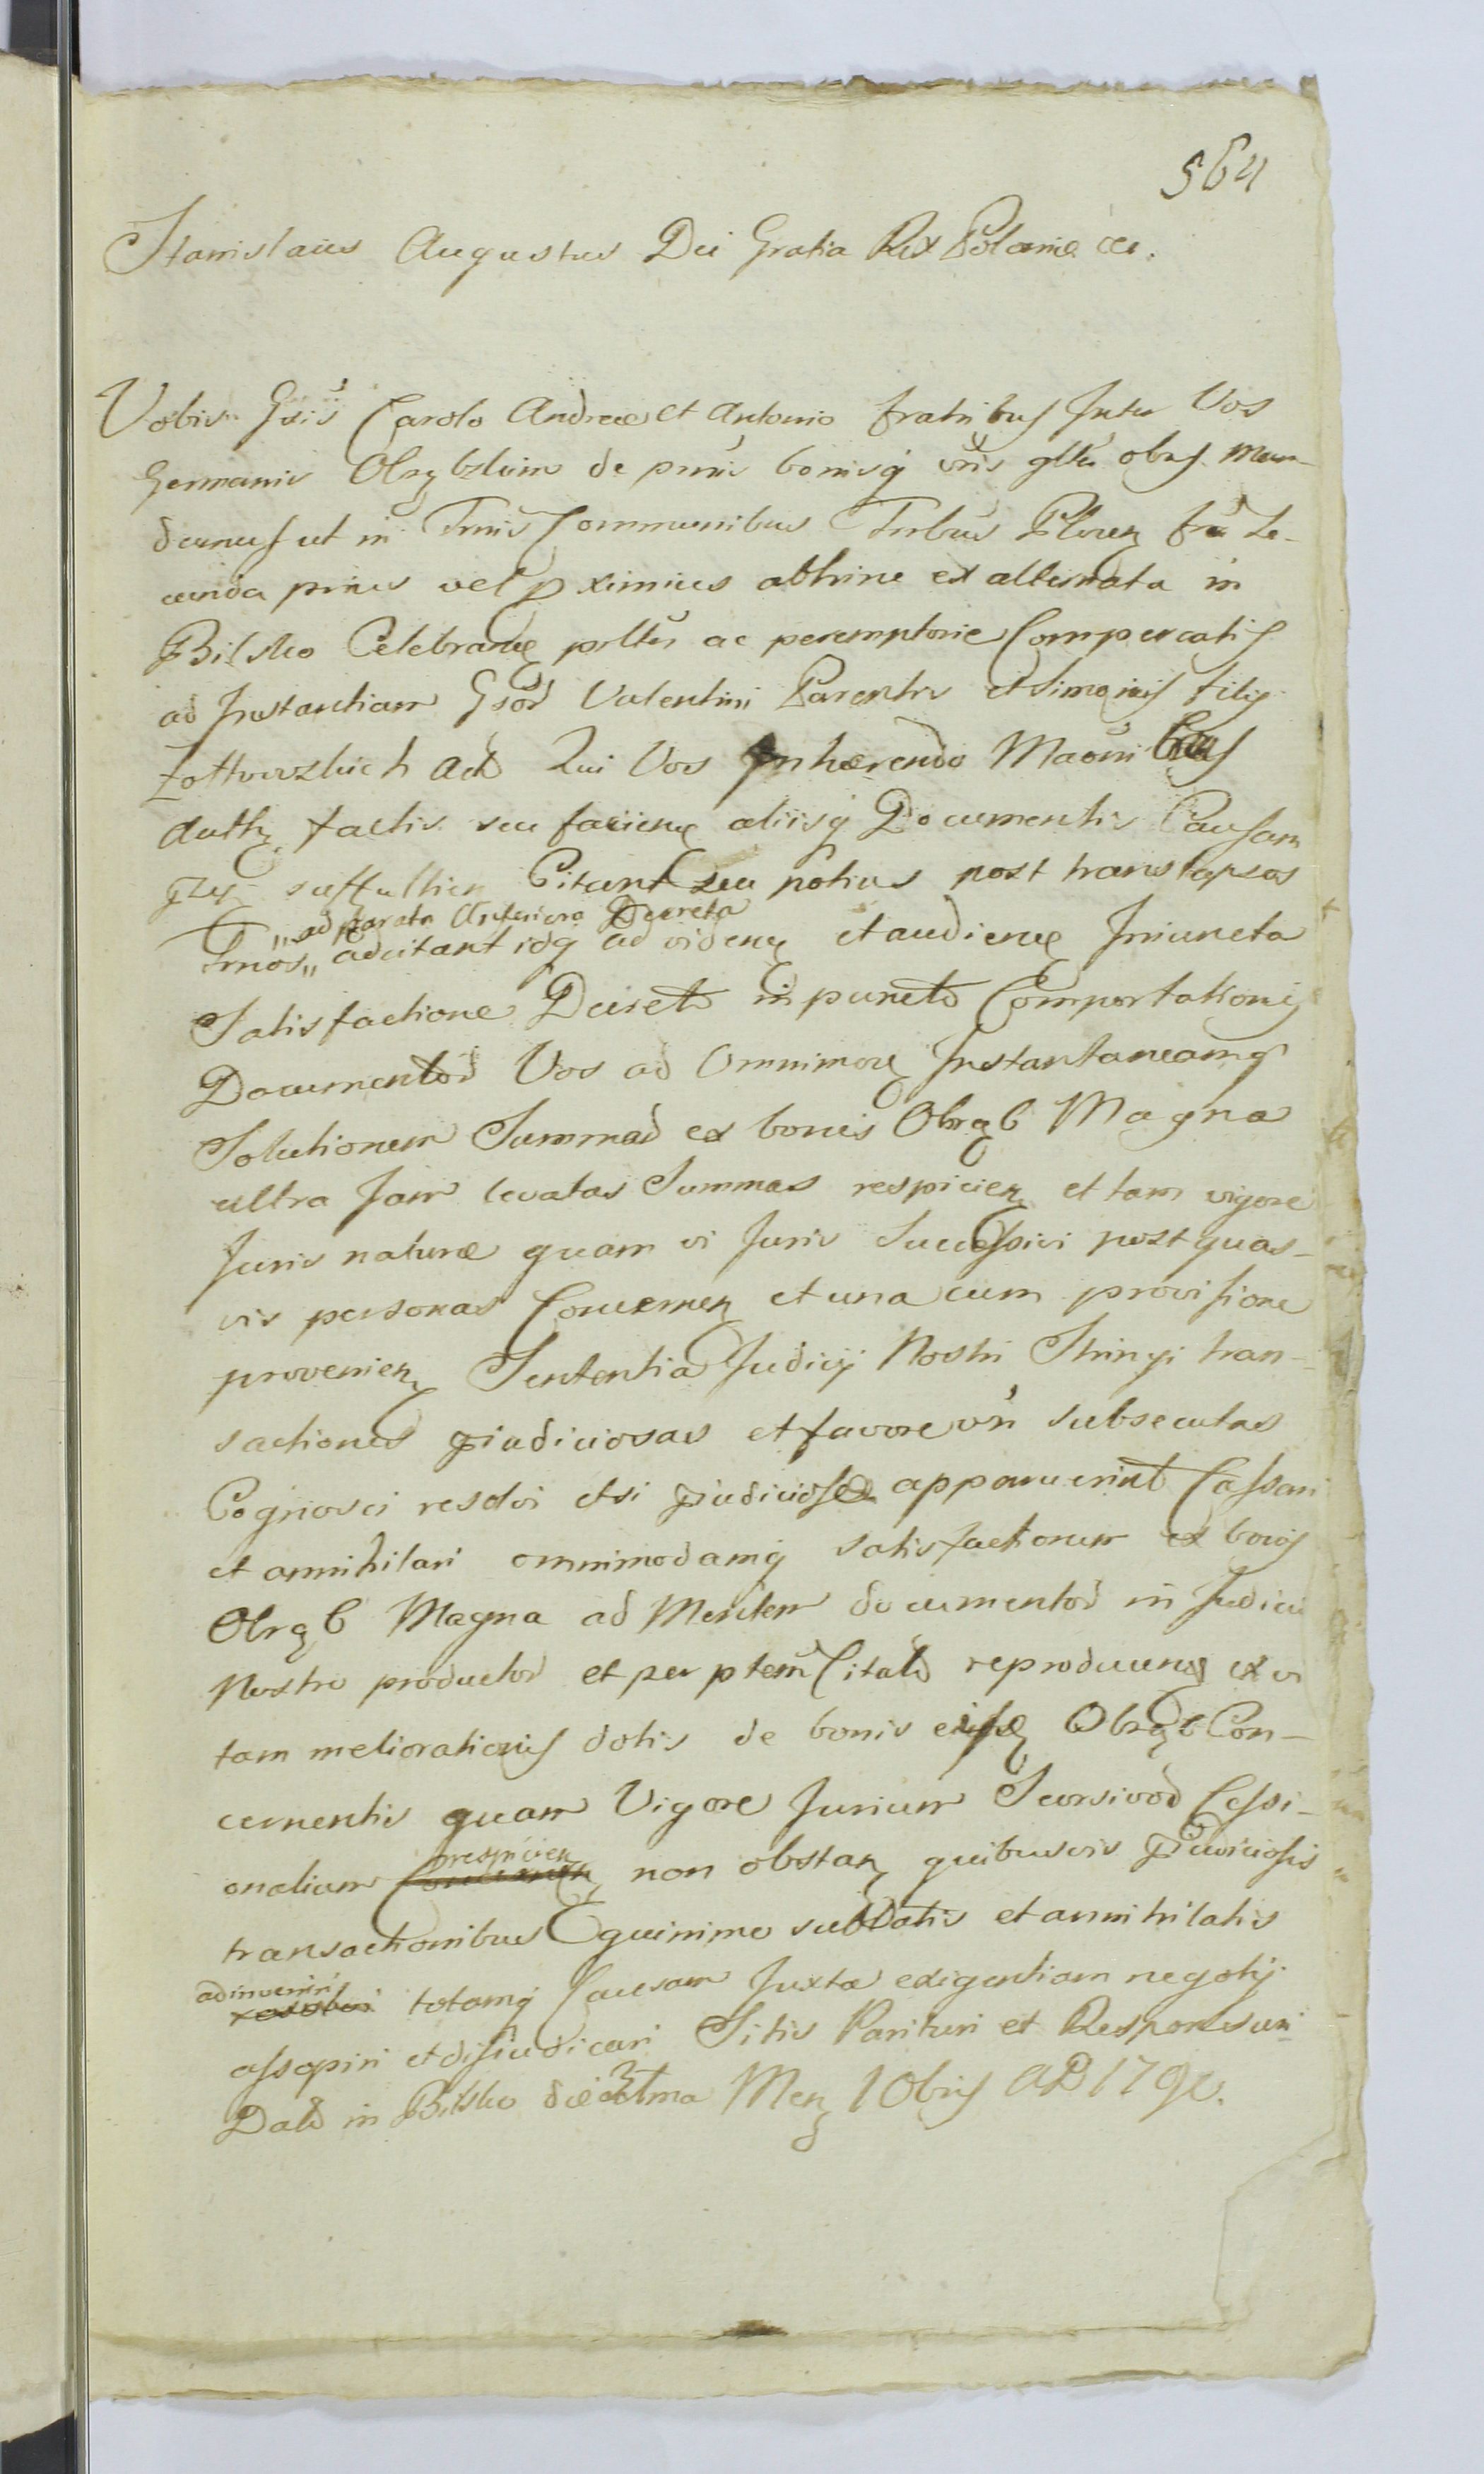 564
Stanislaus Augustus Dei Gratia Rex Poloniæ etc.
Vobis Gsis Carolo Andreæ et Antonio fratribus Inter Vos
Germanis Obrębskim de psnis bonisq vris gltr obus Man-
damus ut in Tmis Communibus Trbus Plocen fria Se-
cunda prius vel pximius abhinc ex alternata in
Bilsko Celebrane psltr ac peremptorie Compareatis
ad Instantiam Gsod Valentini Parentis et Simonis filij
Act Qui Vos Inhærendo Maonibus
Auth factis seu faciene aliisq Documentis Causam
suffultien Citant seu potius post translapsos
„ad parata Anteriora Decreta
Tmos„ adcitant idq ad videne et audiene Iniuncta
Satisfactione Decreto in puncto Comportationis
Documentod Vos ad Omnimode Instantaneamq
Solutionem Summad ex bonis Obręb Magna
ultra Jam levatas Summas respicien et tam vigore
Juris naturæ quam vi Juris Successivi post quas-
vis personas Concernen et una cum provisione
provenien Sententia Judicij Nostri Stringi tran-
sactiones pjudiciosas et favore vri subsecutas
Cognosci resolvi et si pjudiciose apparuerint Cassari
et annihilari omnimodamq satisfactionem ex bonis
Obręb Magna ad Mentem documentod in Judicio
Nostro productod et per ptem Citatd reproducend ex vi
tam meliorationis dotis de bonis eisd Obręb Con-
cernentis quam Vigore Jurium Seorsivod Cessi-
respicien
onalium Concernen non obstan quibusvis pjudiciosis
transactionibus quinimo sublatis et annihilatis
adinveniri
resolvi totamq Causam Juxta exigentiam negotij
assopiri et disiudicari Sitis Parituri et Responsuri
Datd in Bilsko die Men 10bris AD 179